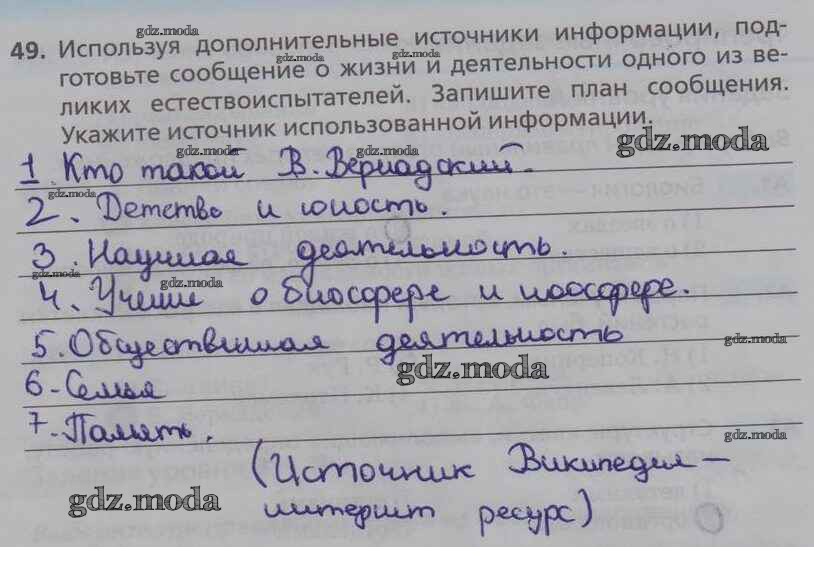 gdz.moda
49. Используя дополнительные источники информации, под-
gdz.moda gdz.moda
готовьте сообщение о жизни и деятельности одного из ве-
ликих естествоиспытателей. Запишите план сообщения.
Укажите источник использованной информации.
gdz.moda
gdz.moda gdz.moda
1. Кто такой В. Вернадский.
gdz.moda
2. Детство и юность.
3. Научная деятельность.
gdz.moda gdz.moda
4. Учение о биосфере и ноосфере.
5. Общественная деятельность
gdz.moda
gdz.moda
6. Семья
7. Память.
gdz.moda
(Источник Википедия –
gdz.moda
интернет ресурс)